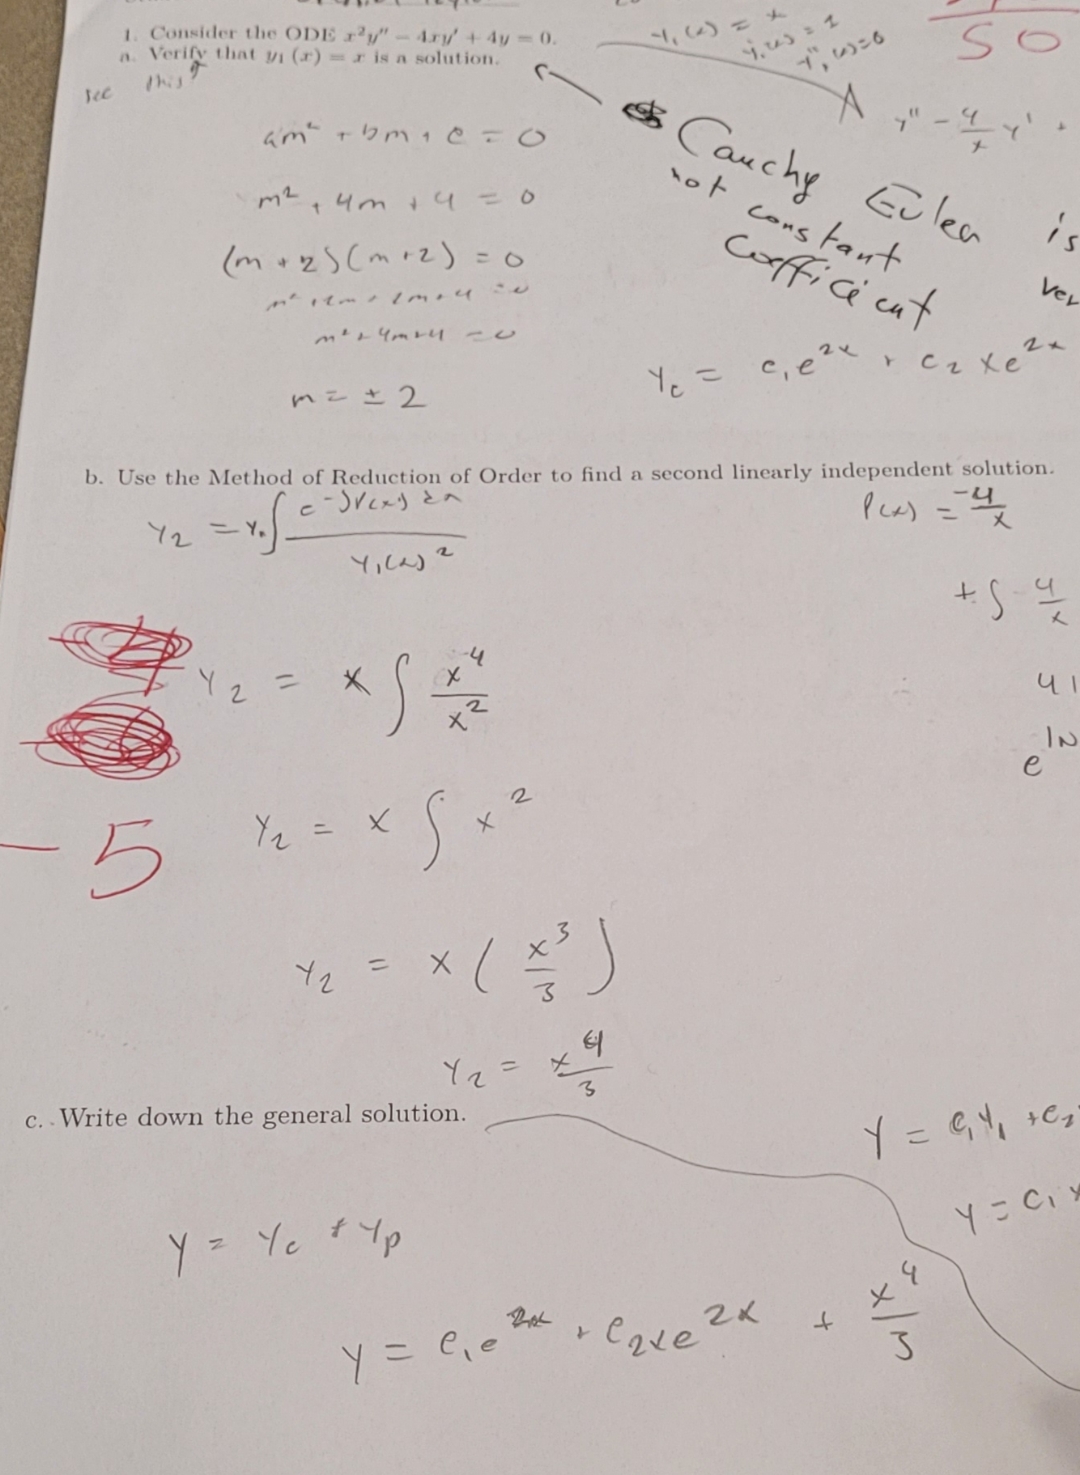 1. Consider the ODE x²y″ − 4xy′ + 4y = 0.
a. Verify that y₁ (x) = x is a solution.
see this
y₁(x) = x
y₁'(x) = 1
y₁''(x) = 0
50
y″ − 4/x y′ +
am² + bm + c = 0
m² + 4m + 4 = 0
(m + 2)(m + 2) = 0
m² + 2m + 2m + 4 = 0
m² + 4m + 4 = 0
m = ± 2
Cauchy Euler is
not constant ver
Coefficient
Yc = c₁e^2x + c₂xe^2x
b. Use the Method of Reduction of Order to find a second linearly independent solution.
Y₂ = Y₁ ∫ e^-∫P(x) dx / Y₁(x)²
P(x) = -4/x
+∫ 4/x
Y₂ = x ∫ x^4/x^2
4 l
e^ln
− 5
Y₂ = x ∫ x²
Y₂ = x ( x³/3 )
Y₂ = x^4/3
c. Write down the general solution.
Y = C₁Y₁ + C₂
Y = C₁ x
Y = Yc + Yp
Y = C₁e^2x + C₂xe^2x + x^4/3